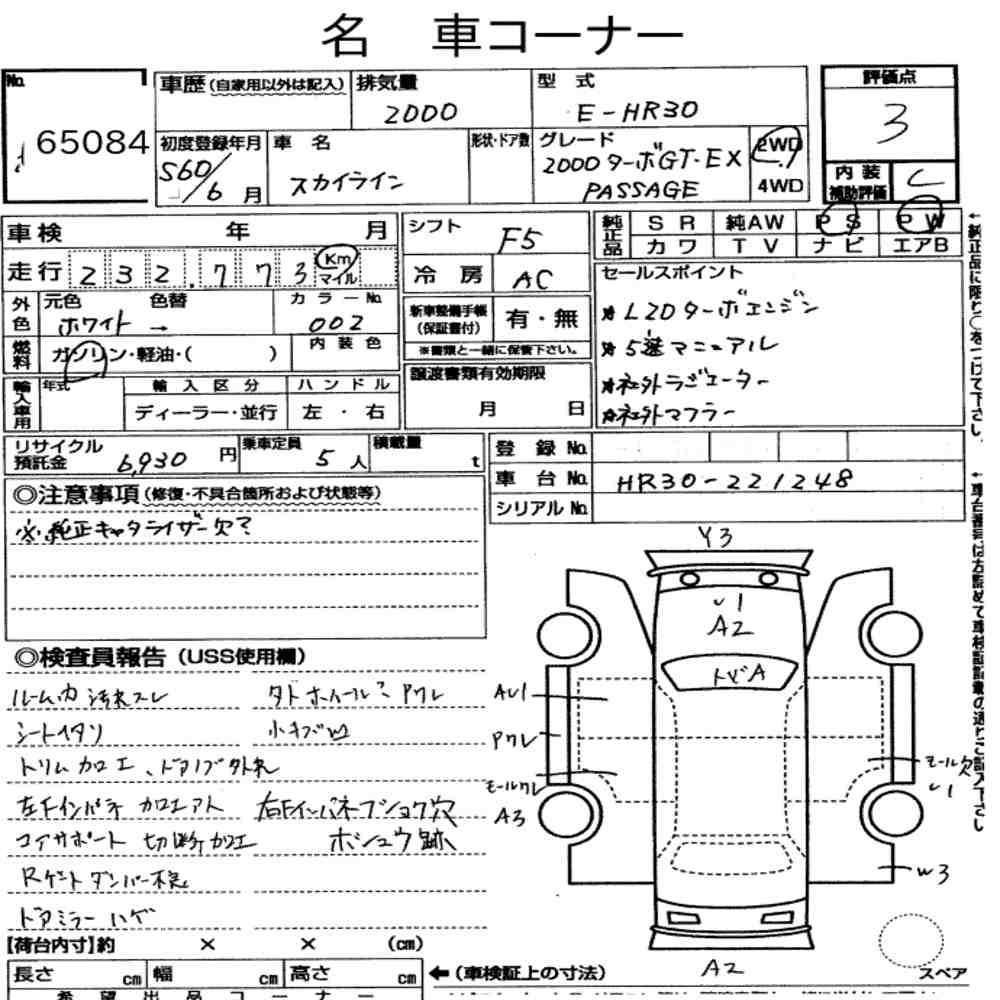 名 車コーナー
No. 65084
車歴(自家用以外は記入) 排気量 2000 型式 E-HR30
評価点 3
初度登録年月 S60/6月 車名 スカイライン 形状・ドア数 グレード 2000ターボGT・EX PASSAGE 2WD 4WD
内装補助評価 C
車検 年 月
走行 232.773 Km マイル
外色 元色 ホワイト → 色替 カラーNo. 002
燃料 ガソリン・軽油・( ) 内装色
輸入車用 年式 輸入区分 ディーラー・並行 ハンドル 左・右
シフト F5
冷房 AC
新車整備手帳(保証書付) 有・無
※書類と一緒に保管下さい。
譲渡書類有効期限
月 日
純正品 SR 純AW PS PW
カワ TV ナビ エアB
セールスポイント
*L20ターボエンジン
*5速マニュアル
*社外ラジエーター
*社外マフラー
リサイクル預託金 6,930円 乗車定員 5人 積載量 t
登録No.
車台No. HR30-221248
シリアルNo.
◎注意事項(修復・不具合箇所および状態等)
※純正キャタライザー欠?
◎検査員報告(USS使用欄)
シートイタリ 小キズ凹
トリムカロエ、ドアノブ外れ
コアサポート 切断カロエ ホシュウ跡
ドアミラーハゲ
Y3
A2
トビA
AU1
Pクレ
モールクレ
A3
モール欠
U1
W3
A2
スペア
【荷台内寸】約 × × (cm)
長さ cm 幅 cm 高さ cm
←(車検証上の寸法)
希望出品コーナー